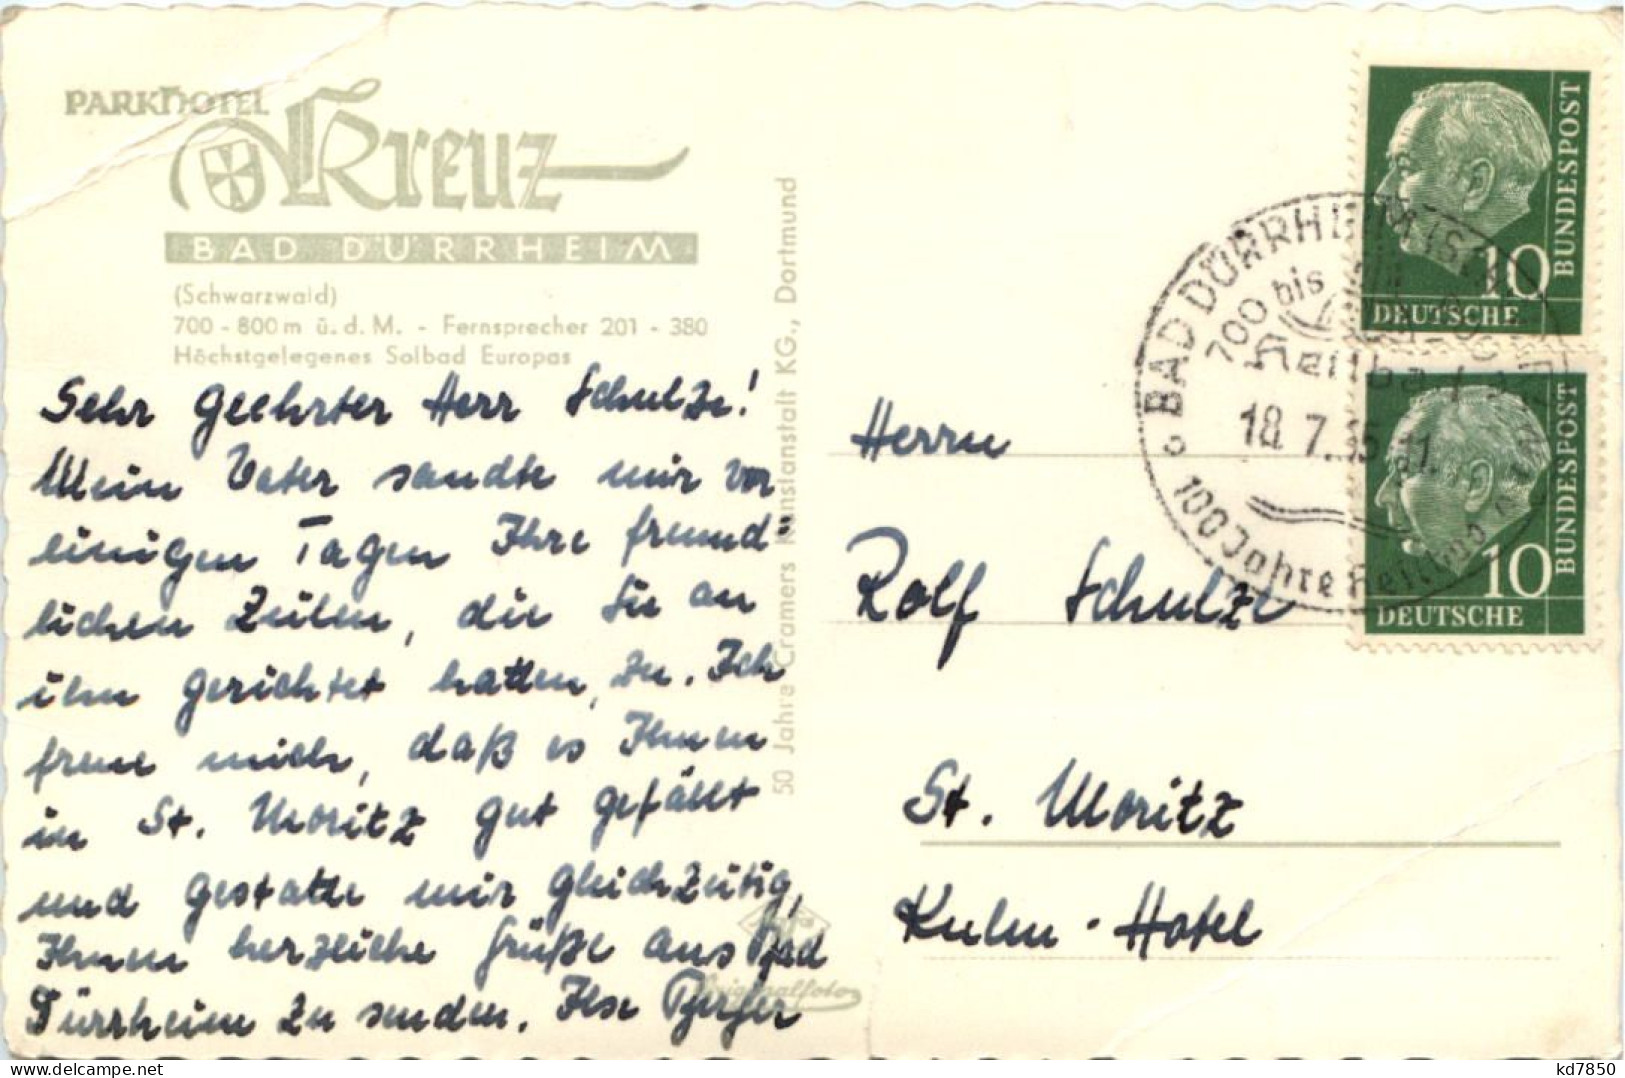 PARKHOTEL
Kreuz
BAD DÜRRHEIM
(Schwarzwald)
700 - 800 m ü. d. M. - Fernsprecher 201 - 380
Höchstgelegenes Solbad Europas
Sehr geehrter Herr Schulze!
Mein Vater sandte mir vor
einigen Tagen Ihre freund=
lichen Zeilen, die Sie an
ihn gerichtet hatten, zu. Ich
freue mich, daß es Ihnen
in St. Moritz gut gefällt
und gestatte mir gleichzeitig,
Ihnen herzliche Grüße aus Bad
Dürrheim zu senden. Ilse
50 Jahre Cramers Kunstanstalt KG., Dortmund
Originalfoto
Herrn
Rolf Schulze
St. Moritz
Kulm - Hotel
BAD DÜRRHEIM
700 bis
Heilbad
18. 7. 11
100 Jahre Heilbad
10
BUNDESPOST
DEUTSCHE
10
BUNDESPOST
DEUTSCHE
kd7850